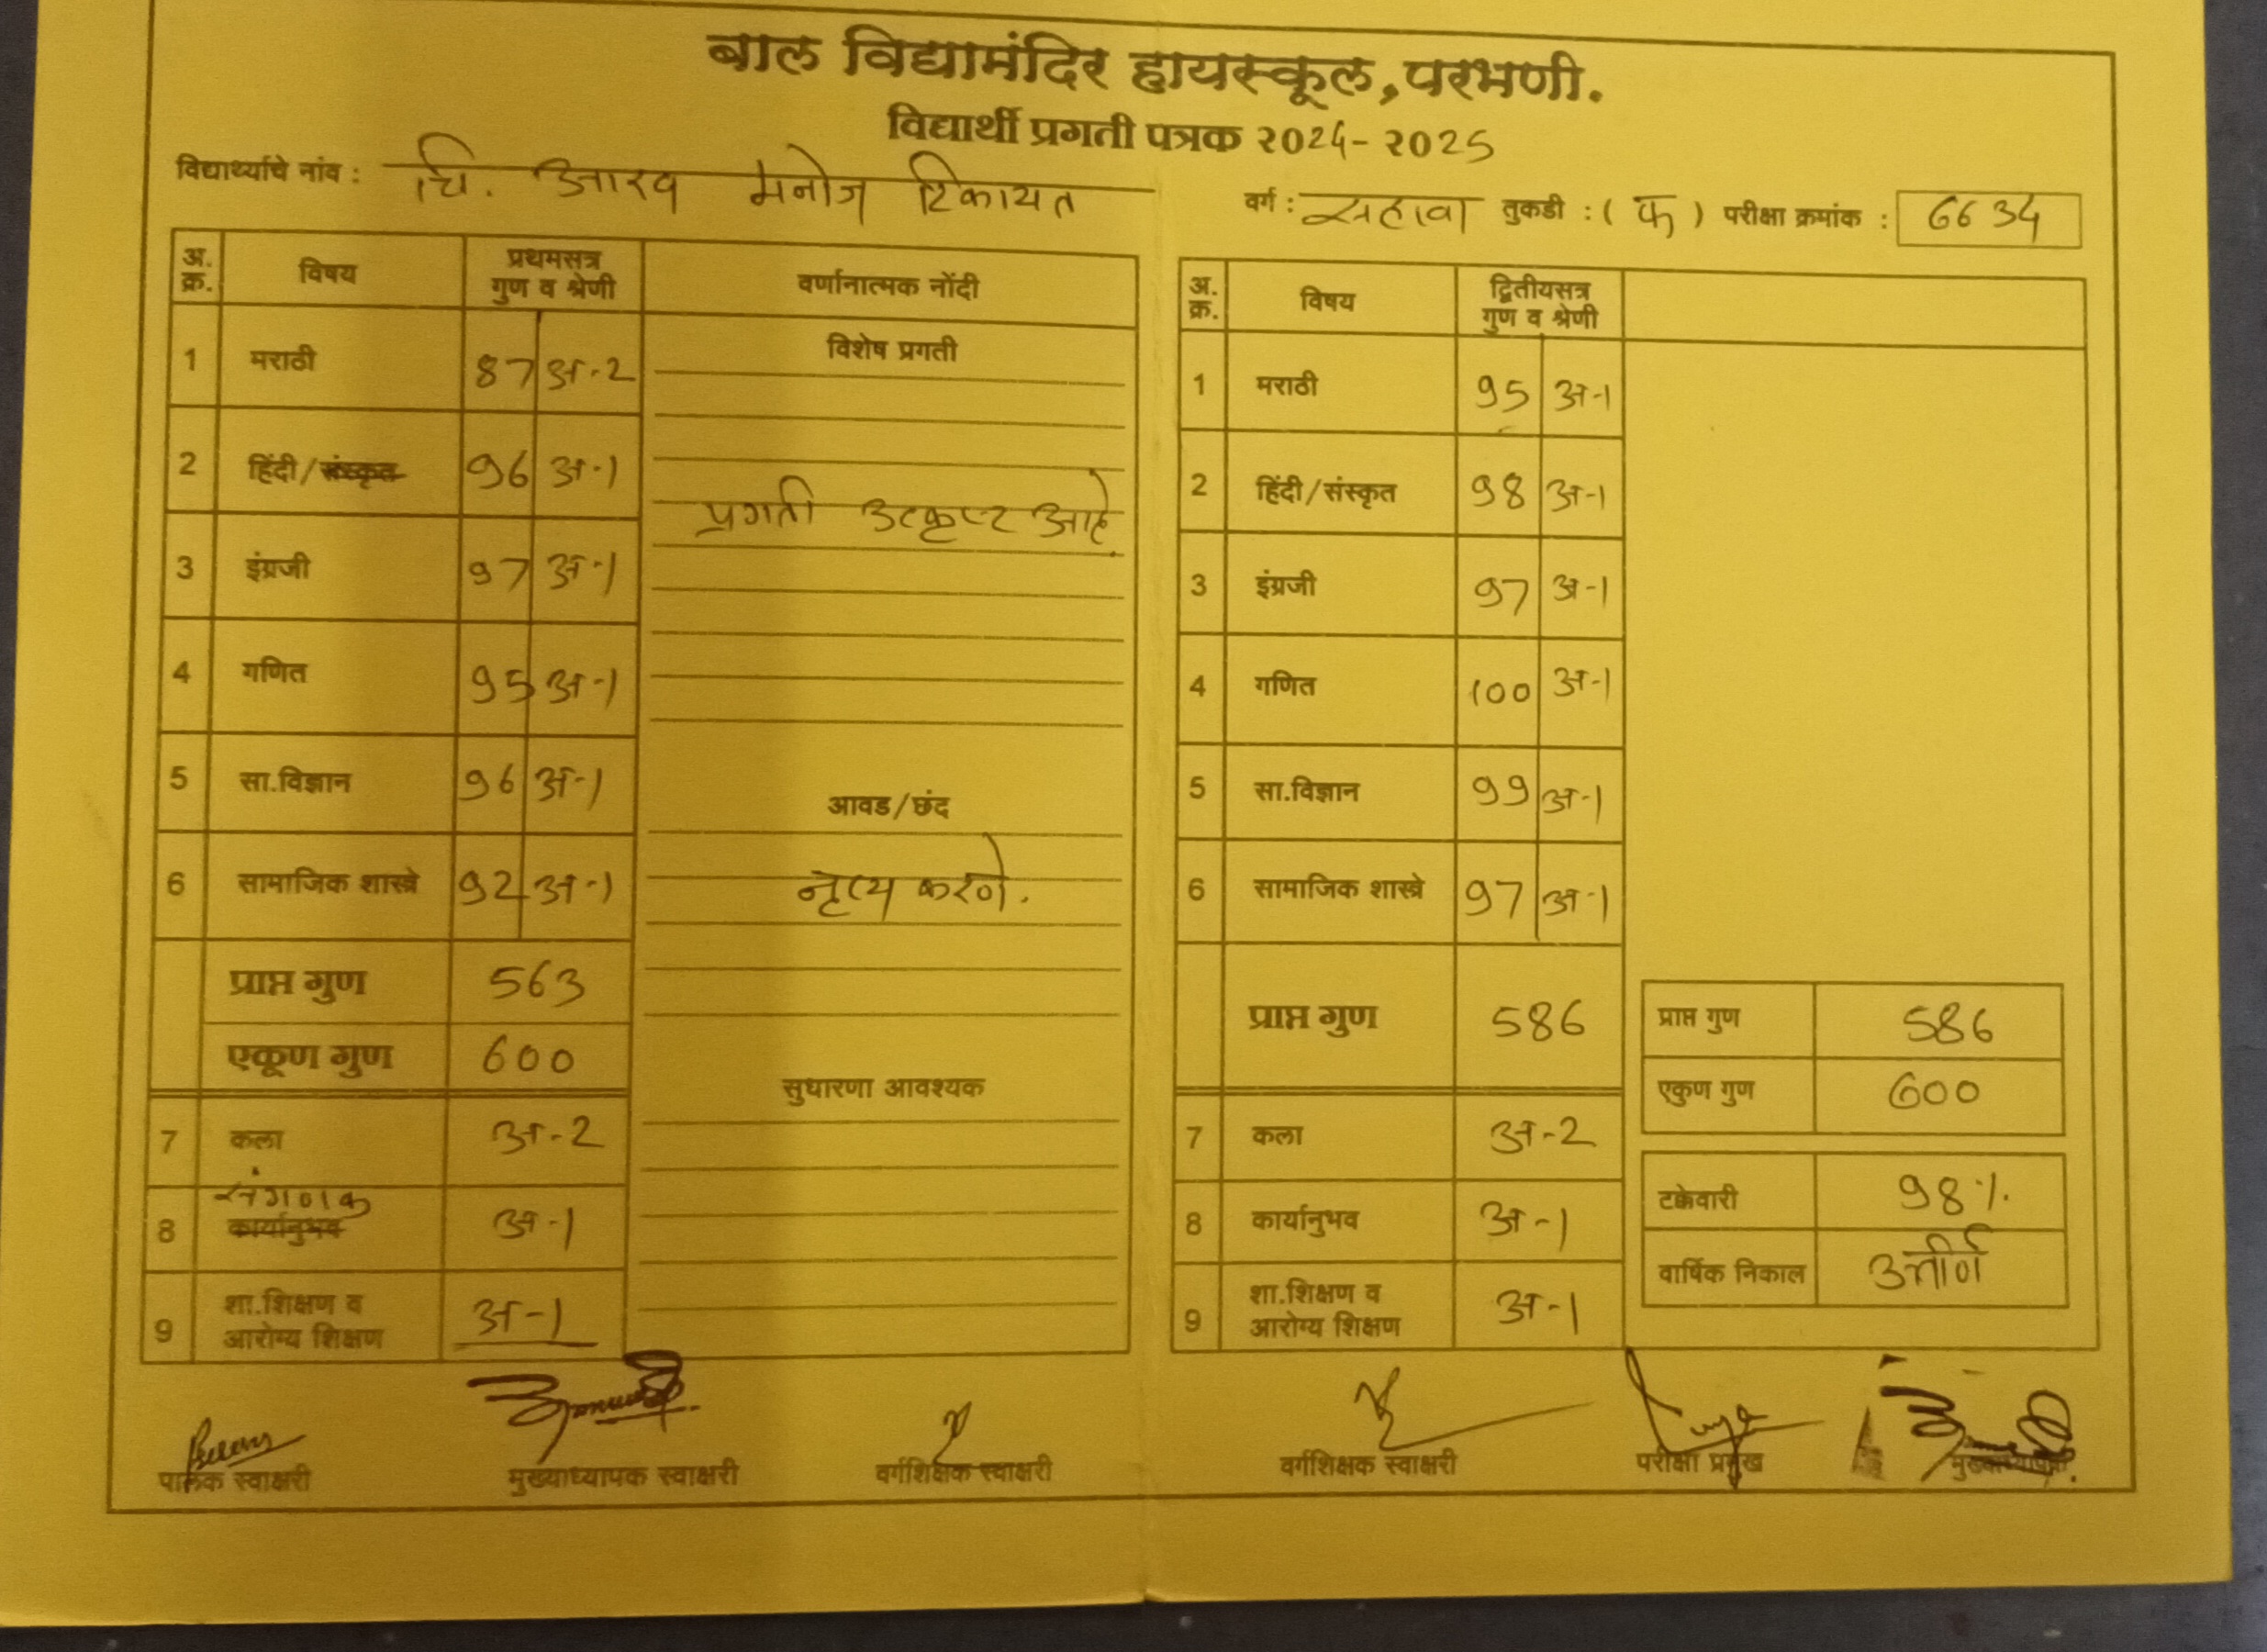 बाल विद्यामंदिर हायस्कूल,परभणी.
विद्यार्थी प्रगती पत्रक २०२4- २०२5
विद्यार्थ्याचे नांव : चि. आरव मनोज टिकायत
वर्ग : सहावा तुकडी : ( क ) परीक्षा क्रमांक : 6634
अ. क्र. विषय प्रथमसत्र गुण व श्रेणी वर्णानात्मक नोंदी
1 मराठी 87 अ-2
2 हिंदी/संस्कृत 96 अ-1
3 इंग्रजी 97 अ-1
4 गणित 95 अ-1
5 सा.विज्ञान 96 अ-1
6 सामाजिक शास्त्रे 92 अ-1
प्राप्त गुण 563
एकूण गुण 600
7 कला अ-2
8 संगणक कार्यानुभव अ-1
9 शा.शिक्षण व आरोग्य शिक्षण अ-1
विशेष प्रगती
प्रगती उत्कृष्ट आहे.
आवड/छंद
नृत्य करणे.
सुधारणा आवश्यक
पालक स्वाक्षरी मुख्याध्यापक स्वाक्षरी वर्गशिक्षक स्वाक्षरी
अ. क्र. विषय द्वितीयसत्र गुण व श्रेणी
1 मराठी 95 अ-1
2 हिंदी/संस्कृत 98 अ-1
3 इंग्रजी 97 अ-1
4 गणित 100 अ-1
5 सा.विज्ञान 99 अ-1
6 सामाजिक शास्त्रे 97 अ-1
प्राप्त गुण 586
7 कला अ-2
8 कार्यानुभव अ-1
9 शा.शिक्षण व आरोग्य शिक्षण अ-1
प्राप्त गुण 586
एकुण गुण 600
टक्केवारी 98%
वार्षिक निकाल उत्तीर्ण
वर्गशिक्षक स्वाक्षरी परीक्षा प्रमुख मुख्याध्यापक